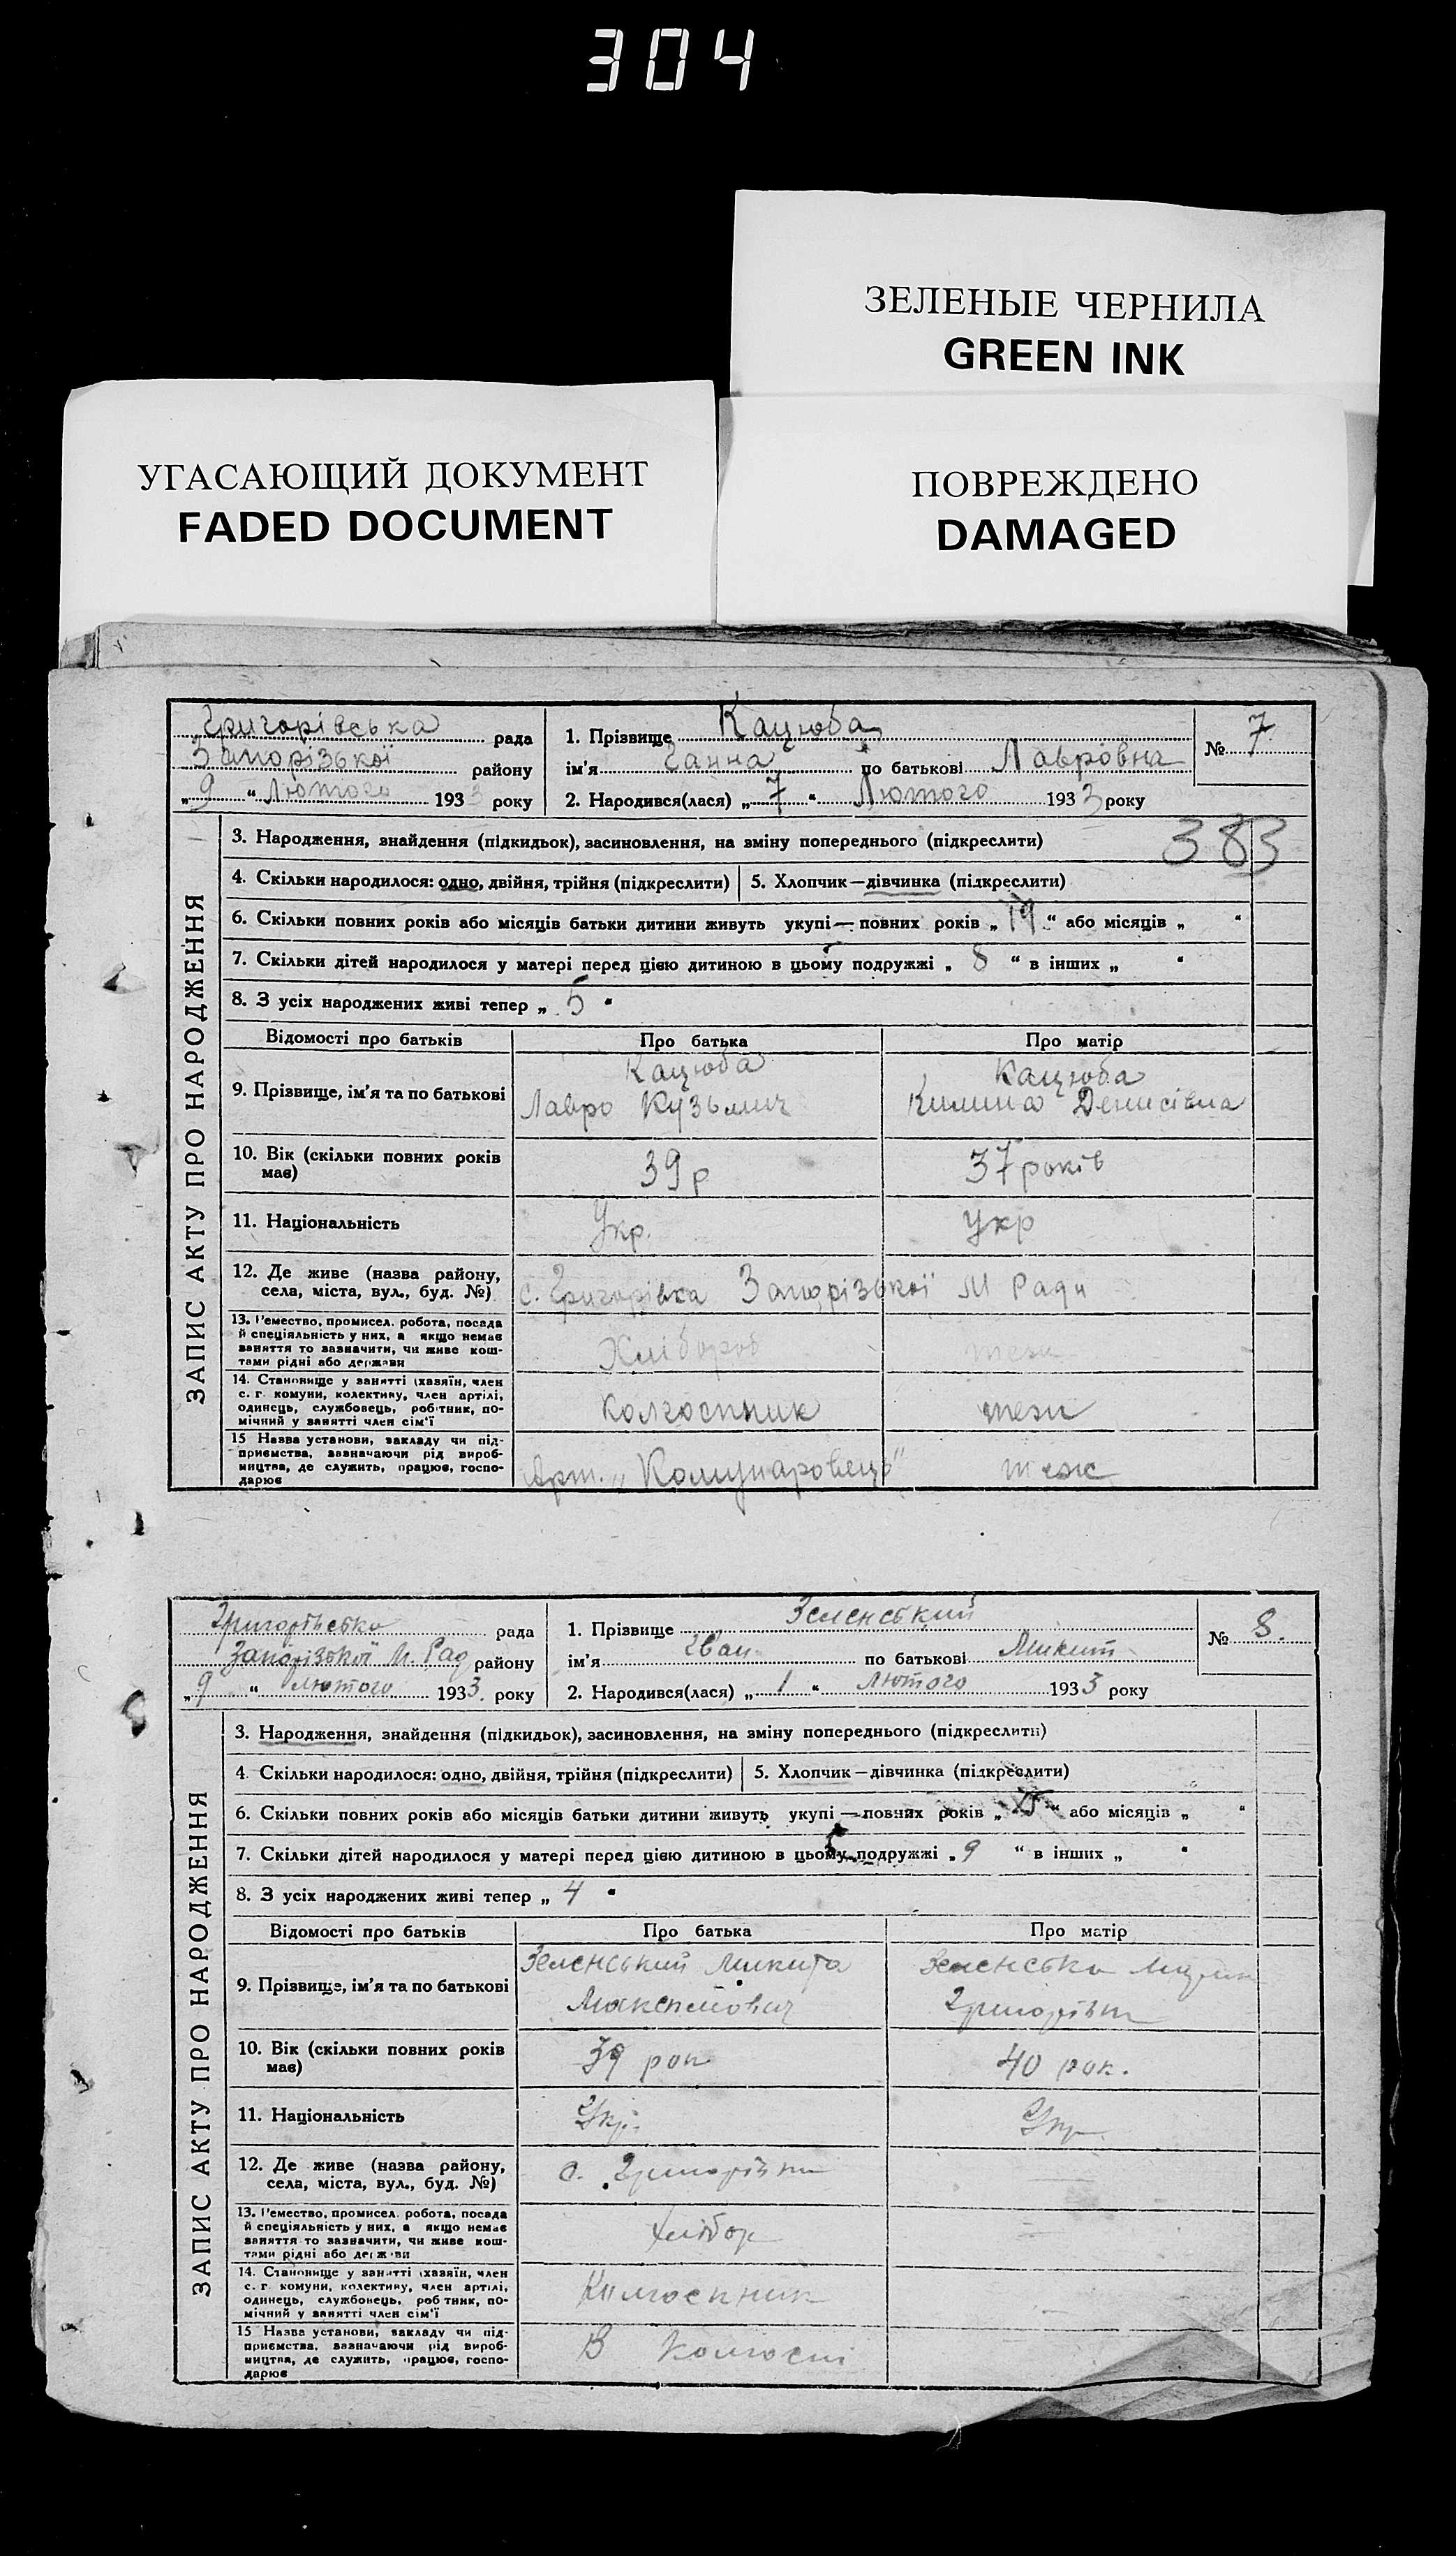 304
ЗЕЛЕНЫЕ ЧЕРНИЛА
GREEN INK
УГАСАЮЩИЙ ДОКУМЕНТ
FADED DOCUMENT
ПОВРЕЖДЕНО
DAMAGED
Григорівська рада
Запорізької району
„9“ Лютого 1933 року
1. Прізвище Кацюба
ім'я Ганна по батькові Лавровна
2. Народився(лася) „7“ Лютого 1933 року
№ 7
383
ЗАПИС АКТУ ПРО НАРОДЖЕННЯ
3. Народження, знайдення (підкидьок), засиновлення, на зміну попереднього (підкреслити)
4. Скільки народилося: одно, двійня, трійня (підкреслити) 5. Хлопчик—дівчинка (підкреслити)
6. Скільки повних років або місяців батьки дитини живуть укупі—повних років „19“ або місяців „ “
7. Скільки дітей народилося у матері перед цією дитиною в цьому подружжі „8“ в інших „ “
8. З усіх народжених живі тепер „5“
Відомості про батьків Про батька Про матір
9. Прізвище, ім'я та по батькові
Кацюба
Лавро Кузьмич
Кацюба
Килина Денисівна
10. Вік (скільки повних років
має)
39 р
37 років
11. Національність Укр. Укр
12. Де живе (назва району,
села, міста, вул., буд. №)
с. Григорівка Запорізької М Ради
13. Ремество, промисел, робота, посада
й спеціяльність у них, а якщо немає
заняття то зазначити, чи живе кош-
тами рідні або держави
Хлібороб
14. Становище у занятті (хазяїн, член
с. г. комуни, колективу, член артілі,
одинець, службовець, робітник, по-
мічний у занятті член сім'ї
Колгоспник
15 Назва установи, закладу чи під-
приємства, зазначаючи рід вироб-
ництва, де служить, працює, госпо-
дарює
Арт. „Комунаровець“
теж
Запорізької М. Рад району
рада
„9“ лютого 1933. року
1. Прізвище Зеленський
ім'я Іван по батькові Микит
2. Народився(лася) „1“ Лютого 1933 року
№ 8.
ЗАПИС АКТУ ПРО НАРОДЖЕННЯ
3. Народження, знайдення (підкидьок), засиновлення, на зміну попереднього (підкреслити)
4. Скільки народилося: одно, двійня, трійня (підкреслити) 5. Хлопчик—дівчинка (підкреслити)
6. Скільки повних років або місяців батьки дитини живуть укупі—повних років „ “ або місяців „ “
7. Скільки дітей народилося у матері перед цією дитиною в цьому подружжі „9“ в інших „ “
8. З усіх народжених живі тепер „4“
Відомості про батьків Про батька Про матір
9. Прізвище, ім'я та по батькові
Зеленський Микита
Максимович
Зеленська
10. Вік (скільки повних років
має)
39 рок
40 рок.
11. Національність Укр. Укр.
12. Де живе (назва району,
села, міста, вул., буд. №)
с. Григорівка
13. Ремество, промисел, робота, посада
й спеціяльність у них, а якщо немає
заняття то зазначити, чи живе кош-
тами рідні або держави
хлібор
14. Становище у занятті (хазяїн, член
с. г. комуни, колективу, член артілі,
одинець, службовець, робітник, по-
мічний у занятті член сім'ї
Колгоспник
15 Назва установи, закладу чи під-
приємства, зазначаючи рід вироб-
ництва, де служить, працює, госпо-
дарює
В колгоспі